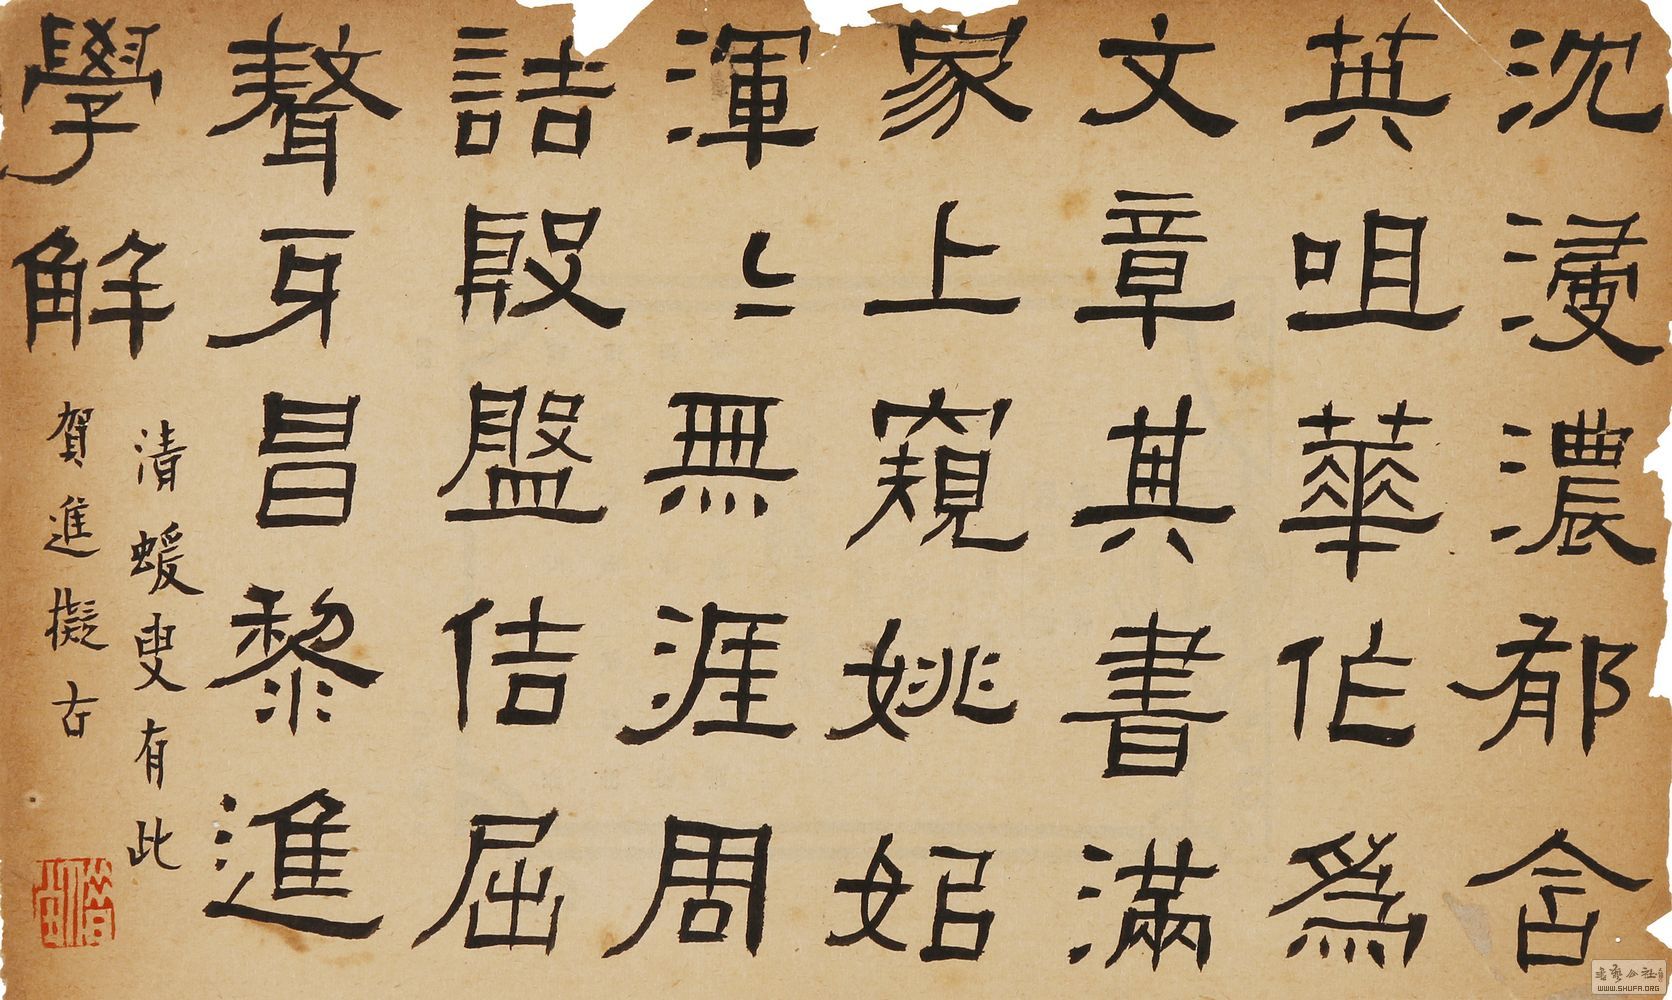 沈浸濃郁含
英咀華作爲
文章其書滿
家上窺姚姒
渾〻無涯周
誥殷盤佶屈
聱牙昌黎進
學解
清蝯叟有此
賀進擬古
WWW.SHUFA.ORG